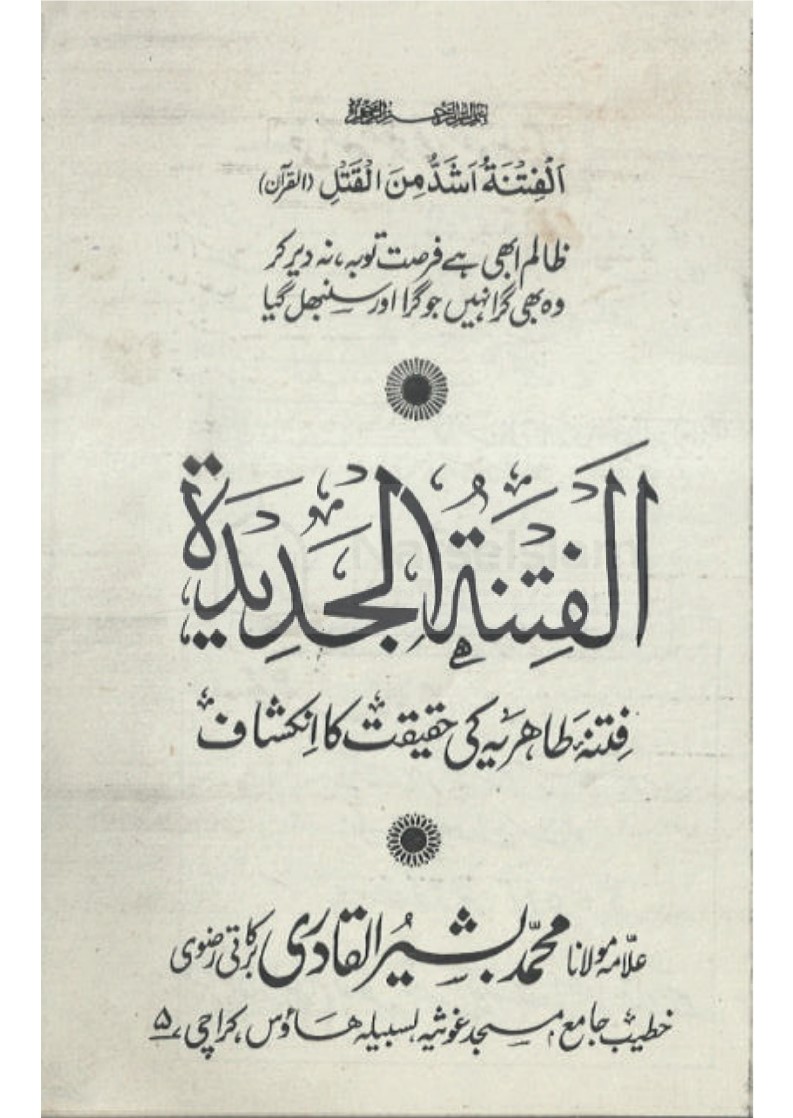 بسم اللہ الرحمن الرحیم
اَلْفِتْنَةُ اَشَدُّ مِنَ الْقَتْلِ (القرآن)
ظالم ابھی ہے فرصت توبہ، نہ دیر کر
وہ بھی گرا نہیں جو گرا اور سنبھل گیا
الفِتنَةُ الجَدِیدَة
فِتنۂ طاہریہ کی حقیقت کا اِنکشاف
علّامہ مولانا محمّد بشیرُ القادری برکاتی رضوی
خطیب جامع مسجد غوثیہ، لسبیلہ ھاؤس، کراچی ۵